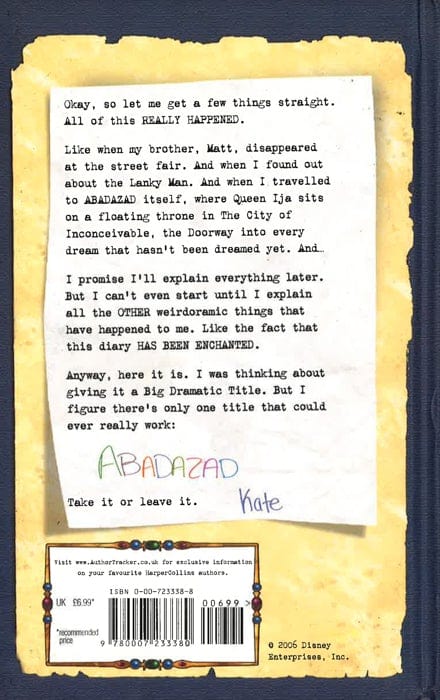 Okay, so let me get a few things straight.
All of this REALLY HAPPENED.
Like when my brother, Matt, disappeared
at the street fair. And when I found out
about the Lanky Man. And when I travelled
to ABADAZAD itself, where Queen Ija sits
on a floating throne in The City of
Inconceivable, the Doorway into every
dream that hasn't been dreamed yet. And…
I promise I'll explain everything later.
But I can't even start until I explain
all the OTHER weirdoramic things that
have happened to me. Like the fact that
this diary HAS BEEN ENCHANTED.
Anyway, here it is. I was thinking about
giving it a Big Dramatic Title. But I
figure there's only one title that could
ever really work:
ABADAZAD
Take it or leave it.
Kate
Visit www.AuthorTracker.co.uk for exclusive information
on your favourite HarperCollins authors.
ISBN 0-00-723338-8
UK £6.99*
00699 >
*recommended
price
9 780007 233380
© 2006 Disney
Enterprises, Inc.